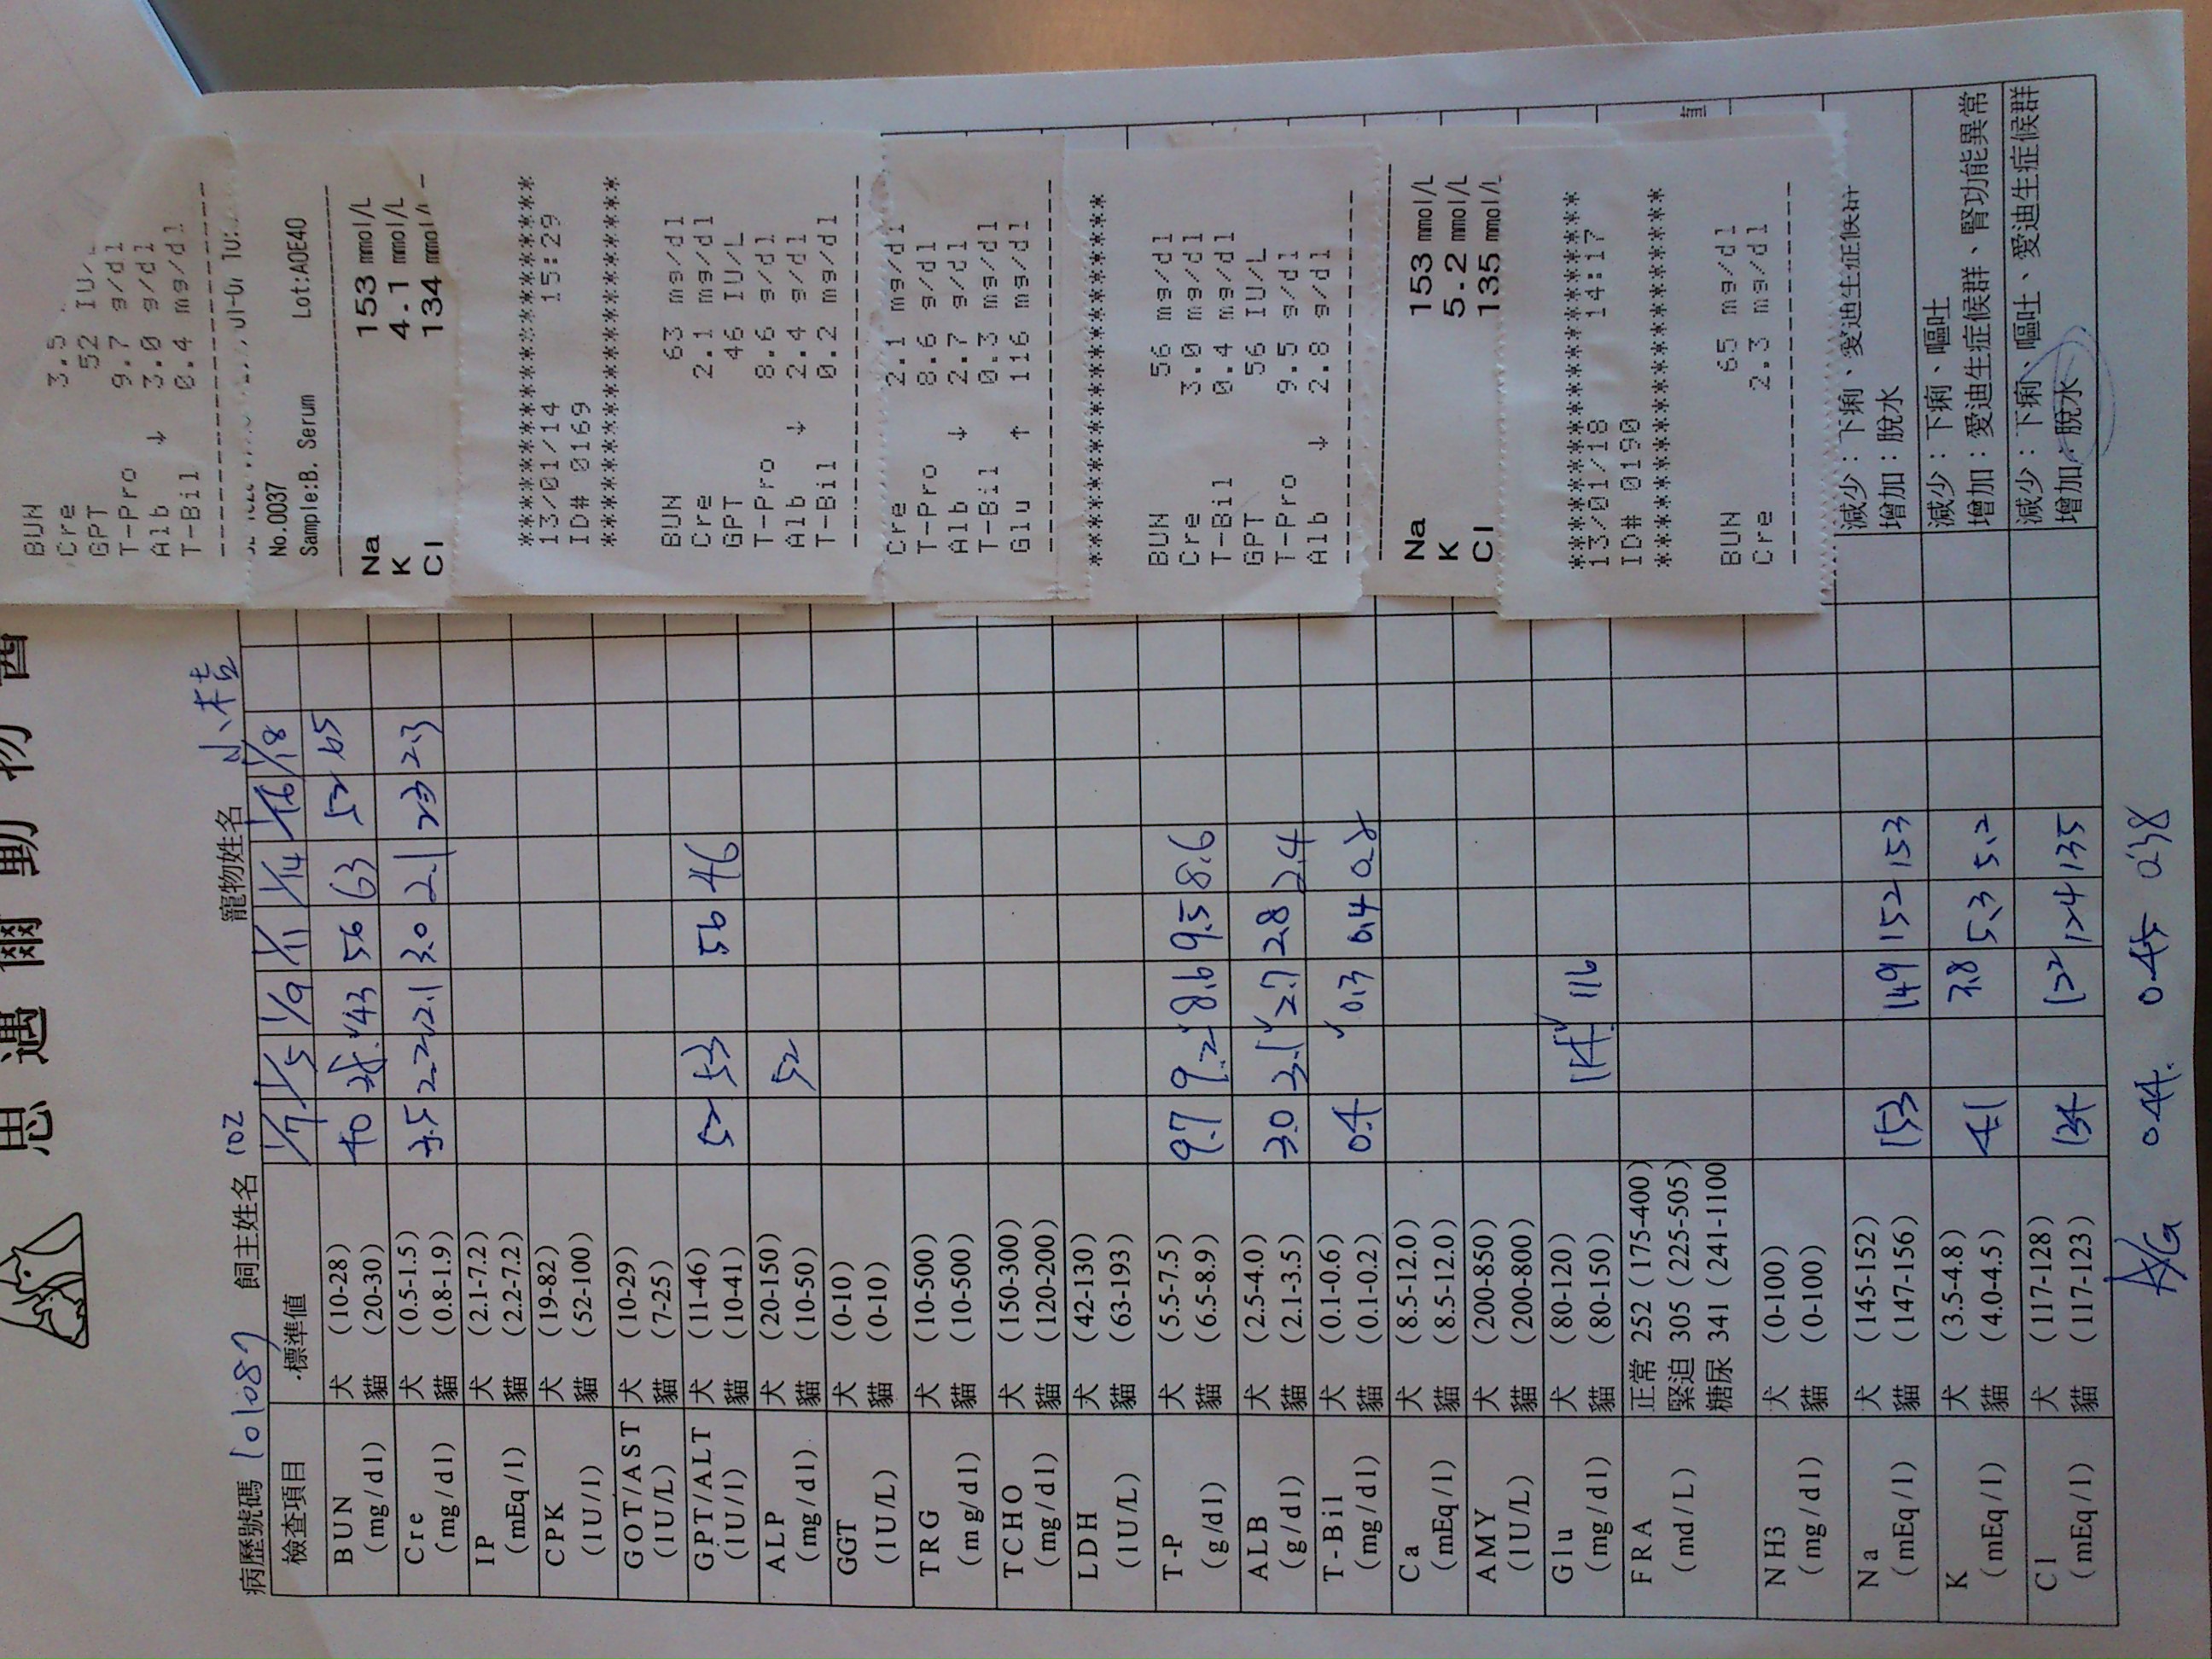 思遇爾動物醫
病歷號碼 101087 飼主姓名 102 寵物姓名 小桔
檢查項目 標準值 1/7 1/5 1/9 1/11 1/14 1/16 1/18
BUN (mg/dl) 犬 (10-28) 貓 (20-30) 40 43 56 63 52 65
Cre (mg/dl) 犬 (0.5-1.5) 貓 (0.8-1.9) 3.5 2.2 2.1 3.0 2.1 2.3 2.3
IP (mEq/l) 犬 (2.1-7.2) 貓 (2.2-7.2)
CPK (IU/l) 犬 (19-82) 貓 (52-100)
GOT/AST (IU/L) 犬 (10-29) 貓 (7-25)
GPT/ALT (IU/l) 犬 (11-46) 貓 (10-41) 52 53 56 46
ALP (mg/dl) 犬 (20-150) 貓 (10-50) 52
GGT (IU/L) 犬 (0-10) 貓 (0-10)
TRG (mg/dl) 犬 (10-500) 貓 (10-500)
TCHO (mg/dl) 犬 (150-300) 貓 (120-200)
LDH (IU/L) 犬 (42-130) 貓 (63-193)
T-P (g/dl) 犬 (5.5-7.5) 貓 (6.5-8.9) 9.7 9.2 8.6 9.5 8.6
ALB (g/dl) 犬 (2.5-4.0) 貓 (2.1-3.5) 3.0 3.1 2.7 2.8 2.4
T-Bil (mg/dl) 犬 (0.1-0.6) 貓 (0.1-0.2) 0.4 0.3 0.4 0.2
Ca (mEq/l) 犬 (8.5-12.0) 貓 (8.5-12.0)
AMY (IU/L) 犬 (200-850) 貓 (200-800)
Glu (mg/dl) 犬 (80-120) 貓 (80-150) 116
FRA (md/L) 正常 252 (175-400) 緊迫 305 (225-505) 糖尿 341 (241-1100
NH3 (mg/dl) 犬 (0-100) 貓 (0-100)
Na (mEq/l) 犬 (145-152) 貓 (147-156) 153 149 152 153 減少：下痢、愛迪生症候群 增加：脫水
K (mEq/l) 犬 (3.5-4.8) 貓 (4.0-4.5) 4.1 3.8 5.3 5.2 減少：下痢、嘔吐 增加：愛迪生症候群、腎功能異常
Cl (mEq/l) 犬 (117-128) 貓 (117-123) 134 122 124 135 減少：下痢、嘔吐、愛迪生症候群 增加：脫水
A/G 0.44. 0.45 0.38
BUN
Cre 3.5
GPT 52 IU/L
T-Pro 9.7 g/dl
Alb ↓ 3.0 g/dl
T-Bil 0.4 mg/dl
No.0037
Sample:B. Serum Lot:A0E40
Na 153 mmol/L
K 4.1 mmol/L
Cl 134 mmol/L
********************
13/01/14 15:29
ID# 0169
********************
BUN 63 mg/dl
Cre 2.1 mg/dl
GPT 46 IU/L
T-Pro 8.6 g/dl
Alb ↓ 2.4 g/dl
T-Bil 0.2 mg/dl
Cre 2.1 mg/dl
T-Pro 8.6 g/dl
Alb ↓ 2.7 g/dl
T-Bil 0.3 mg/dl
Glu ↑ 116 mg/dl
********************
BUN 56 mg/dl
Cre 3.0 mg/dl
T-Bil 0.4 mg/dl
GPT 56 IU/L
T-Pro 9.5 g/dl
Alb ↓ 2.8 g/dl
Na 153 mmol/L
K 5.2 mmol/L
Cl 135 mmol/L
********************
13/01/18 14:17
ID# 0190
********************
BUN 65 mg/dl
Cre 2.3 mg/dl